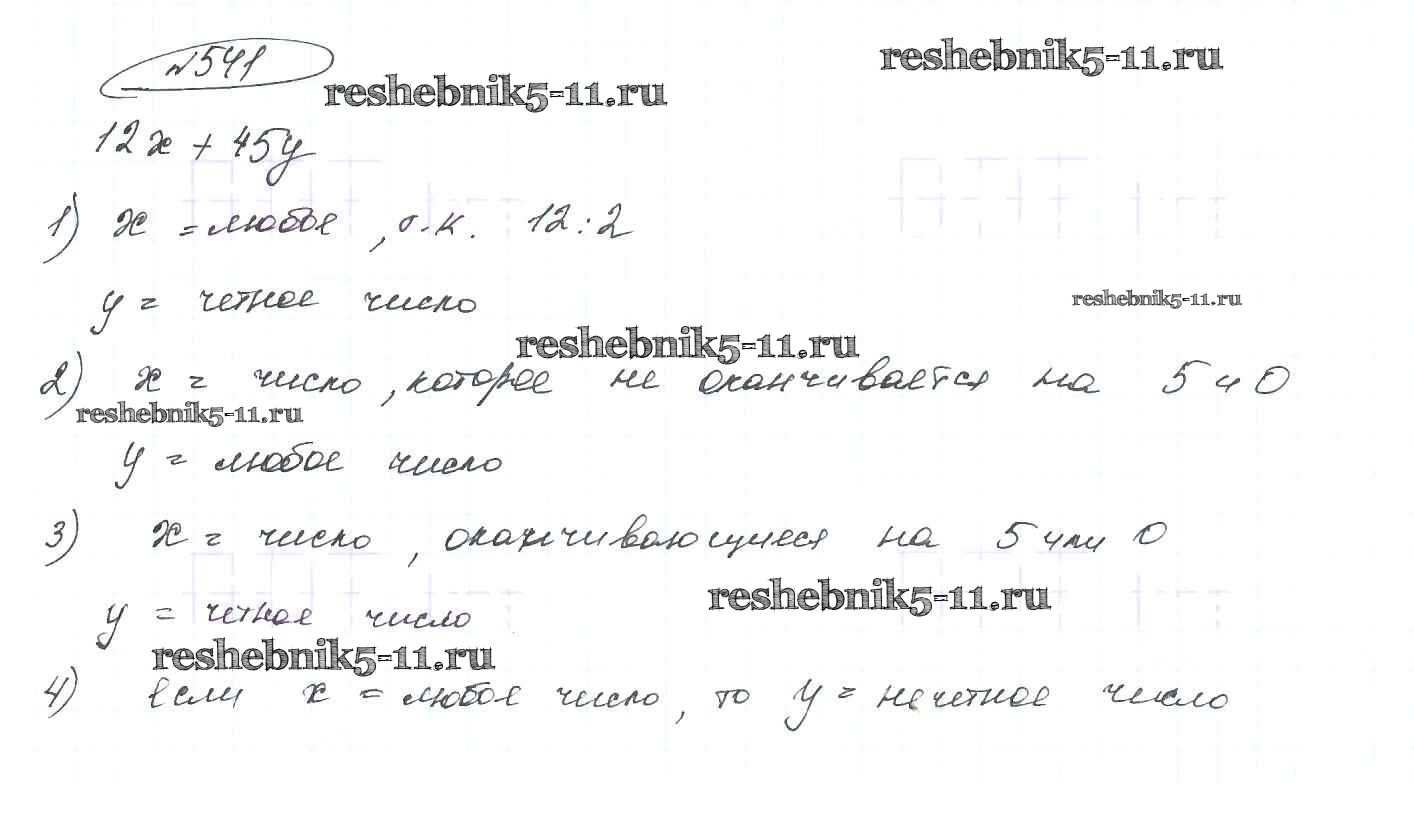 №541
reshebnik5-11.ru
reshebnik5-11.ru
12x + 45y
1) x = любое, т.к. 12:2
y = четное число
reshebnik5-11.ru
reshebnik5-11.ru
2) x = число, которое не оканчивается на 5 и 0
reshebnik5-11.ru
y = любое число
3) x = число, оканчивающиеся на 5 или 0
reshebnik5-11.ru
y = четное число
reshebnik5-11.ru
4) если x = любое число, то y = нечетное число